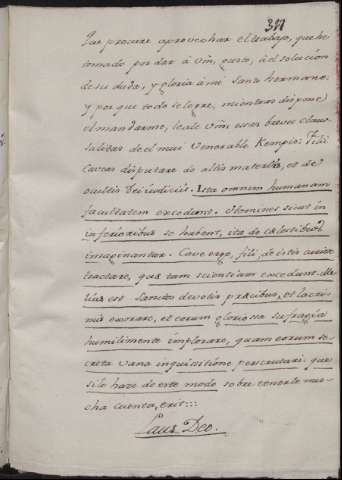 317
Que procure aprovechar el trabajo, que he
tomado por dar à Vm, gusto, à el solucion
de su duda; y gloria à mi santo hermano:
y por que todo se logre, mientras dispone
el mandarme, leale Vm, esas breves clau-
sulitas de el mui Venerable Kempis: Fili
Caveas disputare de altis materiis, et de
ocultis Dei iudiciis. Ista omnem humanam
facultatem excedunt. Homines sicut in
inferioribus se habent, ita de cælestibus
imaginantur. Cave ergo, fili, de istis curiose
tractare, quæ tuam scientiam excedunt. Me
lius est Sanctos devotis præcibus, et lacri-
mis exorare, et eorum gloriosa sufragia
humilimente implorare, quam eorum se-
creta vana inquisitione perscrutari: que
si lo haze de este modo sobre tenerle mu-
cha cuenta, erit:::
Laus Deo.